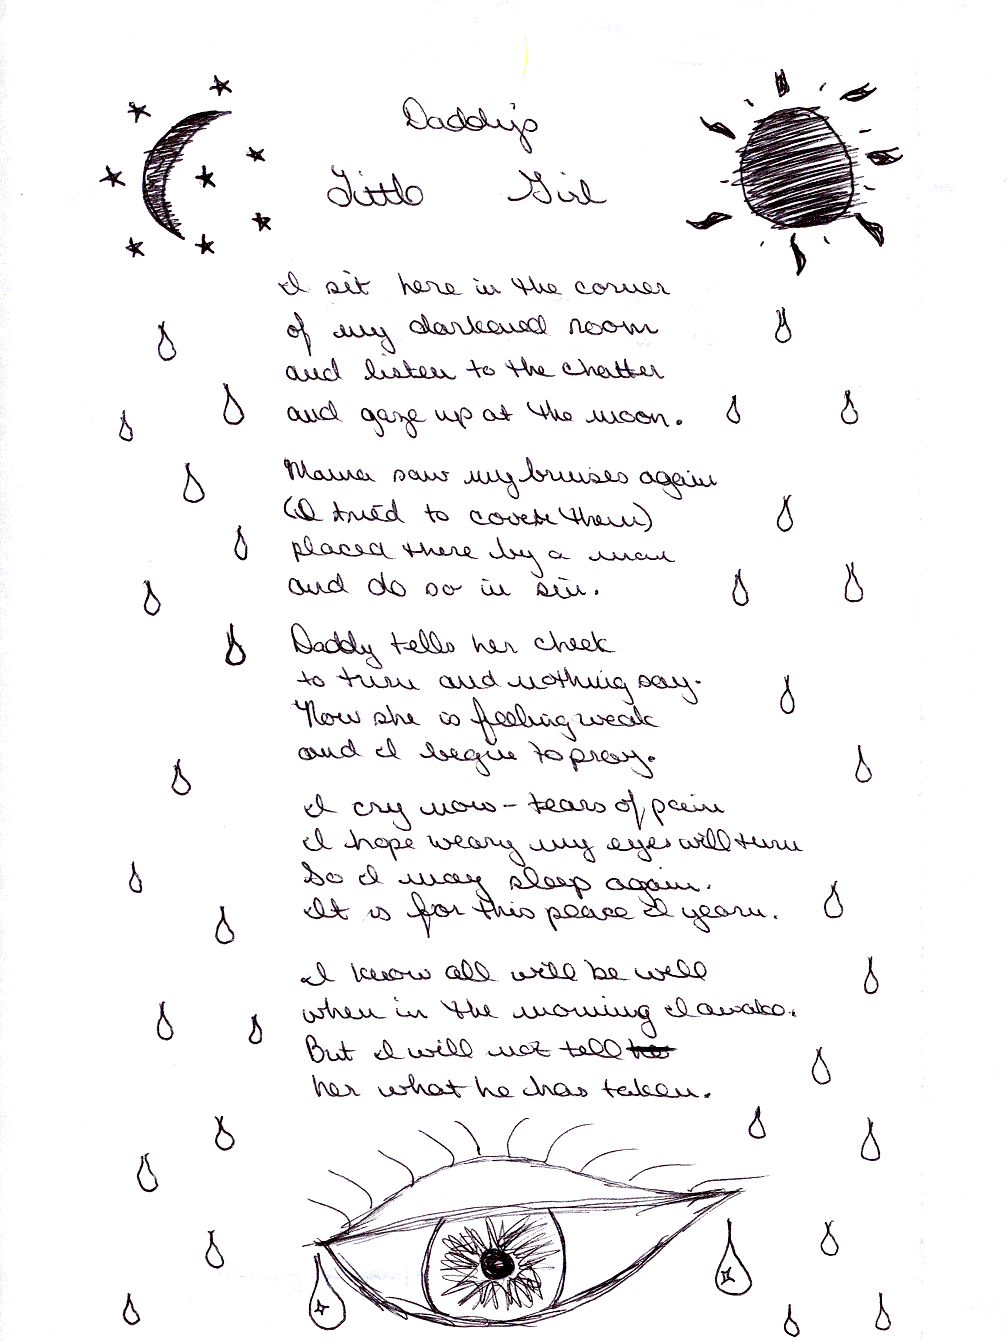 Daddy's
Little Girl
I sit here in the corner
of my darkened room
and listen to the chatter
and gaze up at the moon.
Mama saw my bruises again
(I tried to cover them)
placed there by a man
and do so in sin.
Daddy tells her cheek
to turn and nothing say.
Now she is feeling weak
and I begin to pray.
I cry now - tears of pain
I hope weary my eyes will turn
So I may sleep again.
It is for this peace I yearn.
I know all will be well
when in the morning I awake.
But I will not tell
her what he has taken.